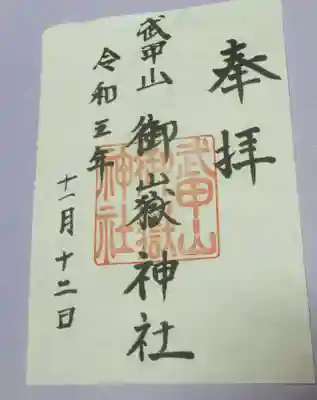 奉拝
武甲山 御嶽神社
令和五年
十一月十二日
武甲山
御嶽
神社